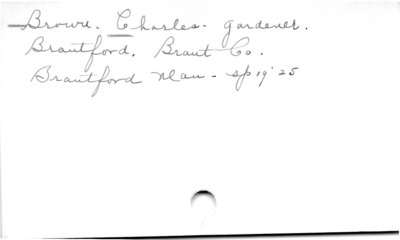 Brown. Charles. gardener.
Brantford, Brant Co.
Brantford Man - Sp 19 '25